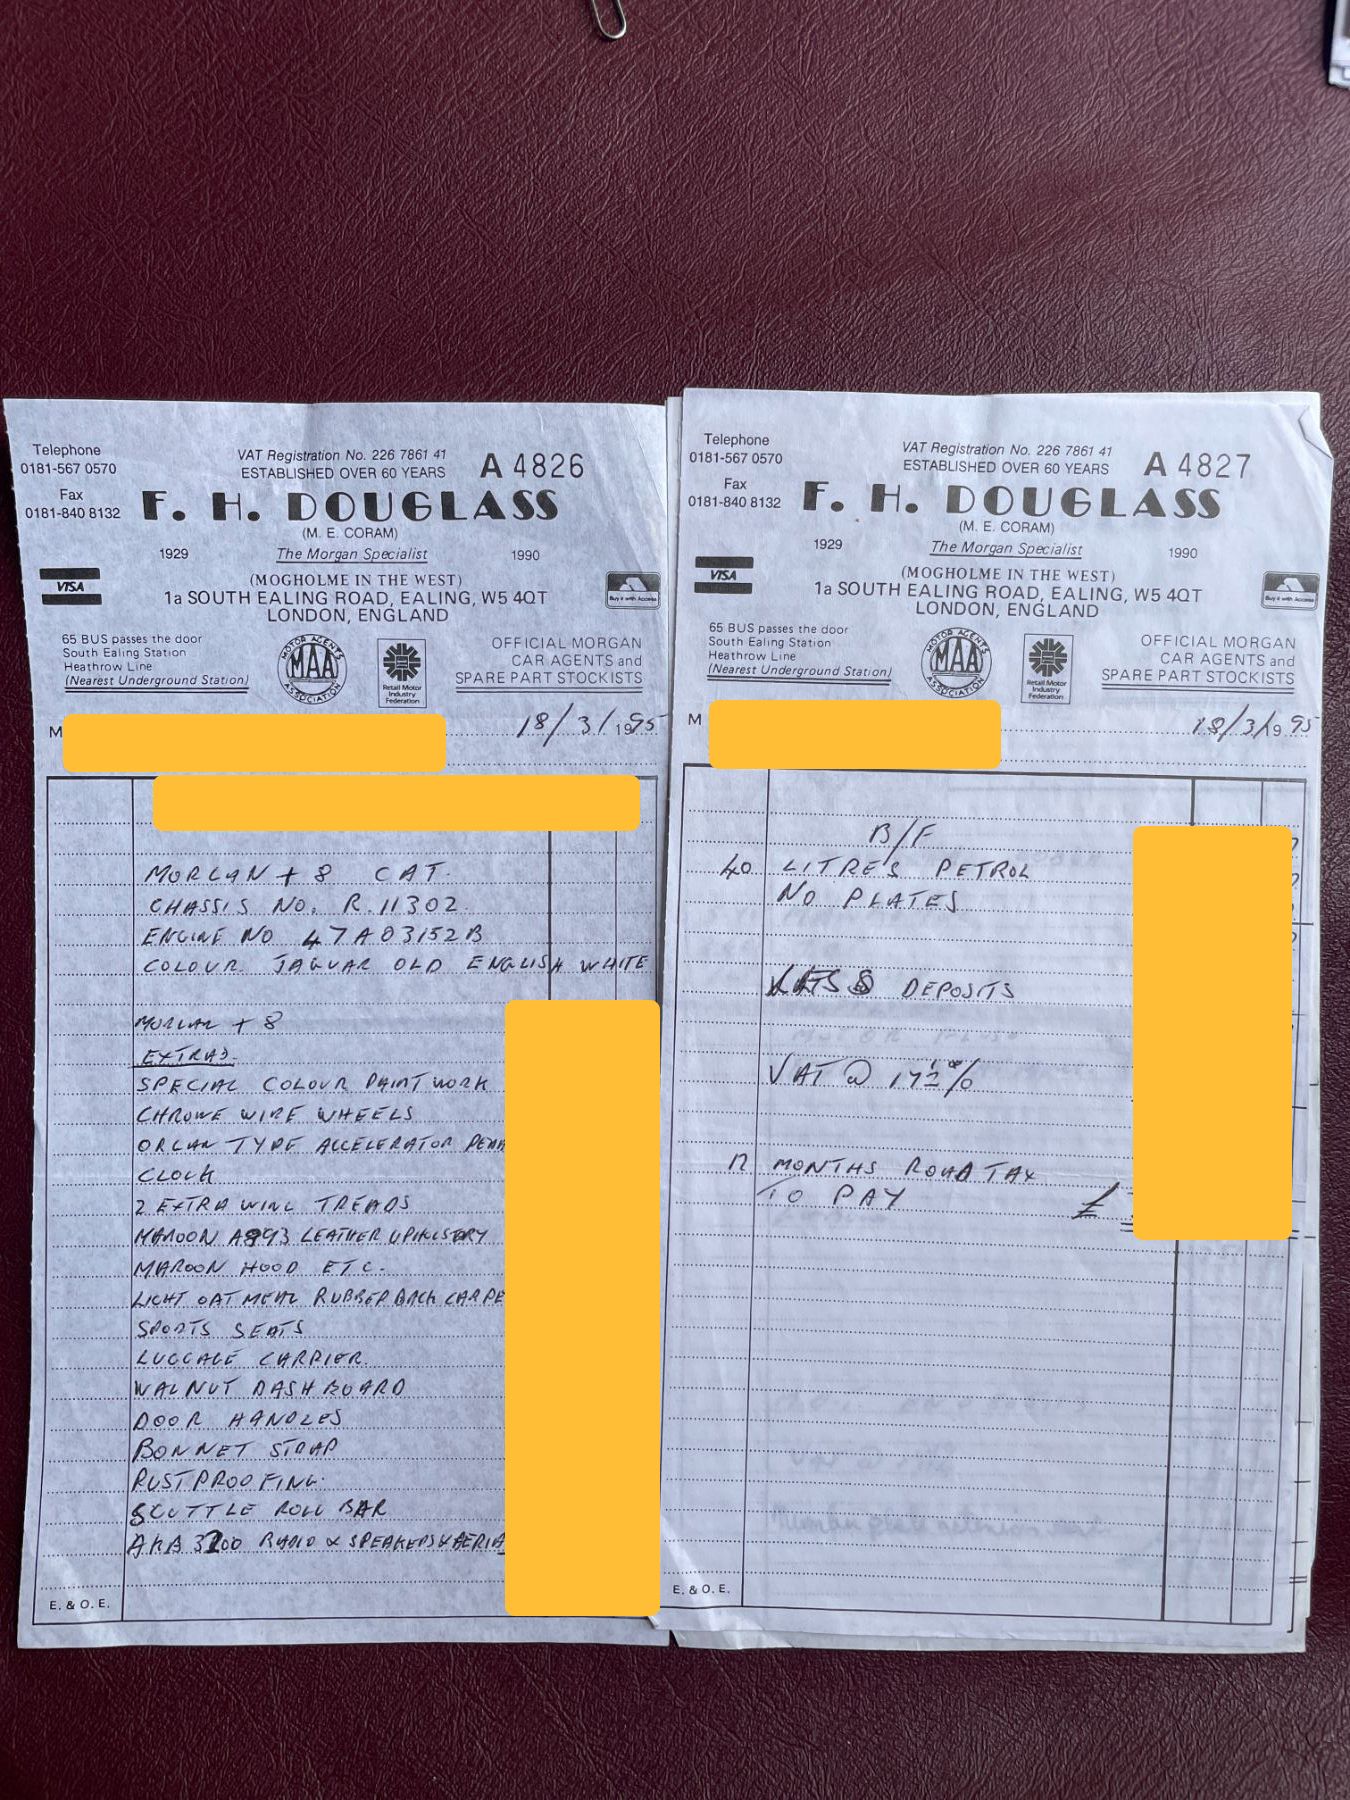 Telephone
0181-567 0570
Fax
0181-840 8132
VAT Registration No. 226 7861 41
ESTABLISHED OVER 60 YEARS
A 4826
F. H. DOUGLASS
(M. E. CORAM)
1929 The Morgan Specialist 1990
VISA
(MOGHOLME IN THE WEST)
1a SOUTH EALING ROAD, EALING, W5 4QT
LONDON, ENGLAND
Buy it with Access
65 BUS passes the door
South Ealing Station
Heathrow Line
(Nearest Underground Station)
MOTOR AGENTS
MAA
ASSOCIATION
Retail Motor
Industry
Federation
OFFICIAL MORGAN
CAR AGENTS and
SPARE PART STOCKISTS
M 18/3/1995
MORGAN + 8 CAT.
CHASSIS NO. R.11302
ENGINE NO 47A03152B
COLOUR JAGUAR OLD ENGLISH WHITE
MORGAN + 8
EXTRAS.
SPECIAL COLOUR PAINTWORK
CHROME WIRE WHEELS
ORGAN TYPE ACCELERATOR
CLOCK
2 EXTRA WING TREADS
MAROON A893 LEATHER UPHOLSTRY
MAROON HOOD ETC.
LIGHT OATMEAL RUBBERBACK CARPE
SPORTS SEATS
LUGGAGE CARRIER
WALNUT DASHBOARD
DOOR HANDLES
BONNET STRAP
RUSTPROOFING
SCUTTLE ROLL BAR
3200 RADIO & SPEAKERS & AERIA
E. & O. E.
Telephone
0181-567 0570
Fax
0181-840 8132
VAT Registration No. 226 7861 41
ESTABLISHED OVER 60 YEARS
A 4827
F. H. DOUGLASS
(M. E. CORAM)
1929 The Morgan Specialist 1990
VISA
(MOGHOLME IN THE WEST)
1a SOUTH EALING ROAD, EALING, W5 4QT
LONDON, ENGLAND
Buy it with Access
65 BUS passes the door
South Ealing Station
Heathrow Line
(Nearest Underground Station)
MOTOR AGENTS
MAA
ASSOCIATION
Retail Motor
Industry
Federation
OFFICIAL MORGAN
CAR AGENTS and
SPARE PART STOCKISTS
M 18/3/1995
B/F
40 LITRES PETROL
NO PLATES
DEPOSITS
VAT @ 17½%
12 MONTHS ROAD TAX
TO PAY £
E. & O. E.